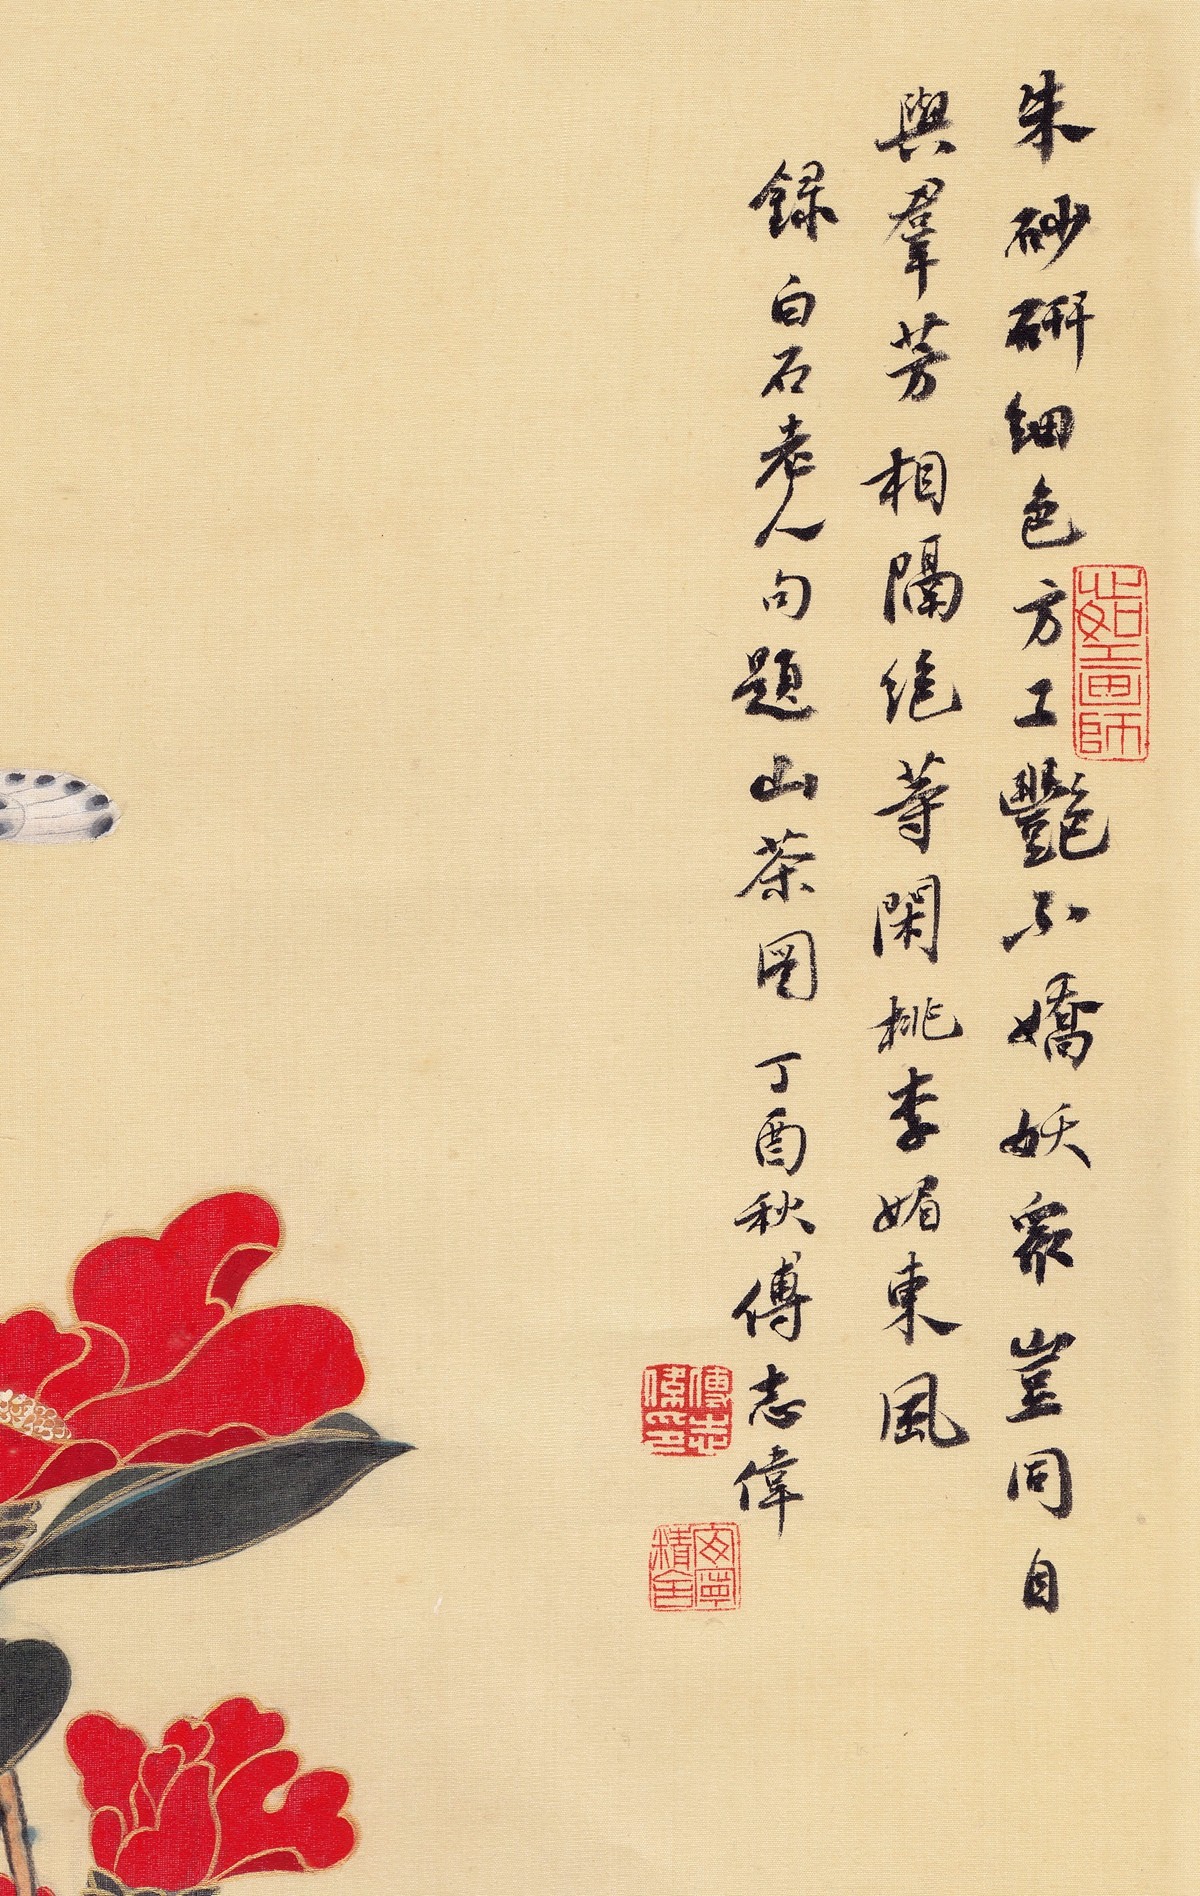 朱砂研細色方工艷不嬌妖衆豈同自
與羣芳相隔絕等閑桃李媚東風
錄白石老人句題山茶圖 丁酉秋傅志偉
傅志偉印
安寧精舍